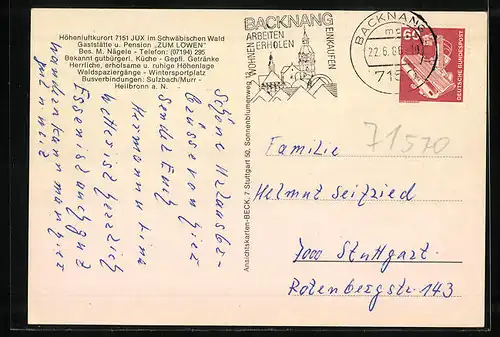 Höhenluftkurort 7151 JUX im Schwäbischen Wald
Gaststätte u. Pension „ZUM LÖWEN"
Bes. M. Nägele - Telefon: (07194) 295
Bekannt gutbürgerl. Küche - Gepfl. Getränke
Herrliche, erholsame u. ruhige Höhenlage
Waldspaziergänge - Wintersportplatz
Busverbindungen: Sulzbach/Murr -
Heilbronn a. N.
Schöne Urlaubs-
grüsse von hier
sendet Euch
Hermann u.
Wetter ist herrlich
Essen ist auch gut
wandern kann man hier
gut
Ansichtskarten-BECK, 7 Stuttgart 50, Sonnenblumenweg
BACKNANG
WOHNEN
ARBEITEN
ERHOLEN
EINKAUFEN
BACKNANG
22.6.
715
60
DEUTSCHE BUNDESPOST
71570
Familie
Helmut Seifried
7000 Stuttgart
Rotenbergstr. 143